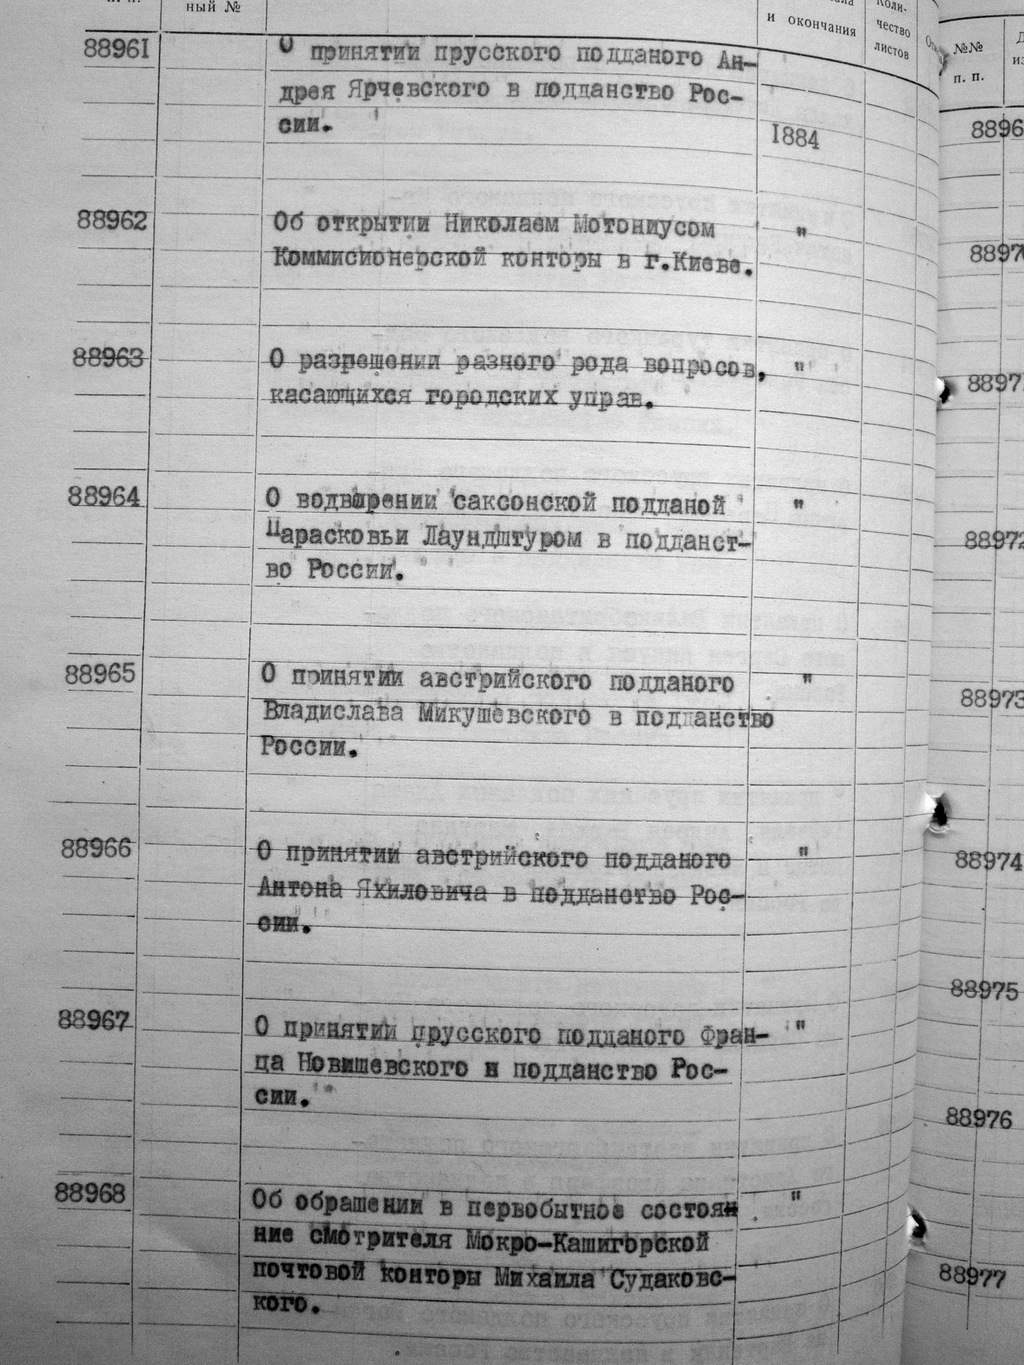 ный №
и окончания
чество
листов
№№
п. п.
88961
О принятии прусского подданого Ан-
дрея Ярчевского в подданство Рос-
сии.
1884
88962
Об открытии Николаем Мотониусом "
Коммисионерской конторы в г.Киеве.
88963
О разрешении разного рода вопросов, "
касающихся городских управ.
88964
О водвырении саксонской подданой "
Парасковьи Лаундштуром в подданст-
во России.
88965
О принятии австрийского подданого "
Владислава Микушевского в подданство
России.
88966
О принятии австрийского подданого "
Антона Яхиловича в подданство Рос-
сии.
88967
О принятии прусского подданого Фран- "
ца Новишевского н подданство Рос-
сии.
88968
Об обрашении в первобытное состоян "
ние смотрителя Мокро-Кашигорской
почтовой конторы Михаила Судаковс-
кого.
8896
8897
8897
8897
88973
88974
88975
88976
88977